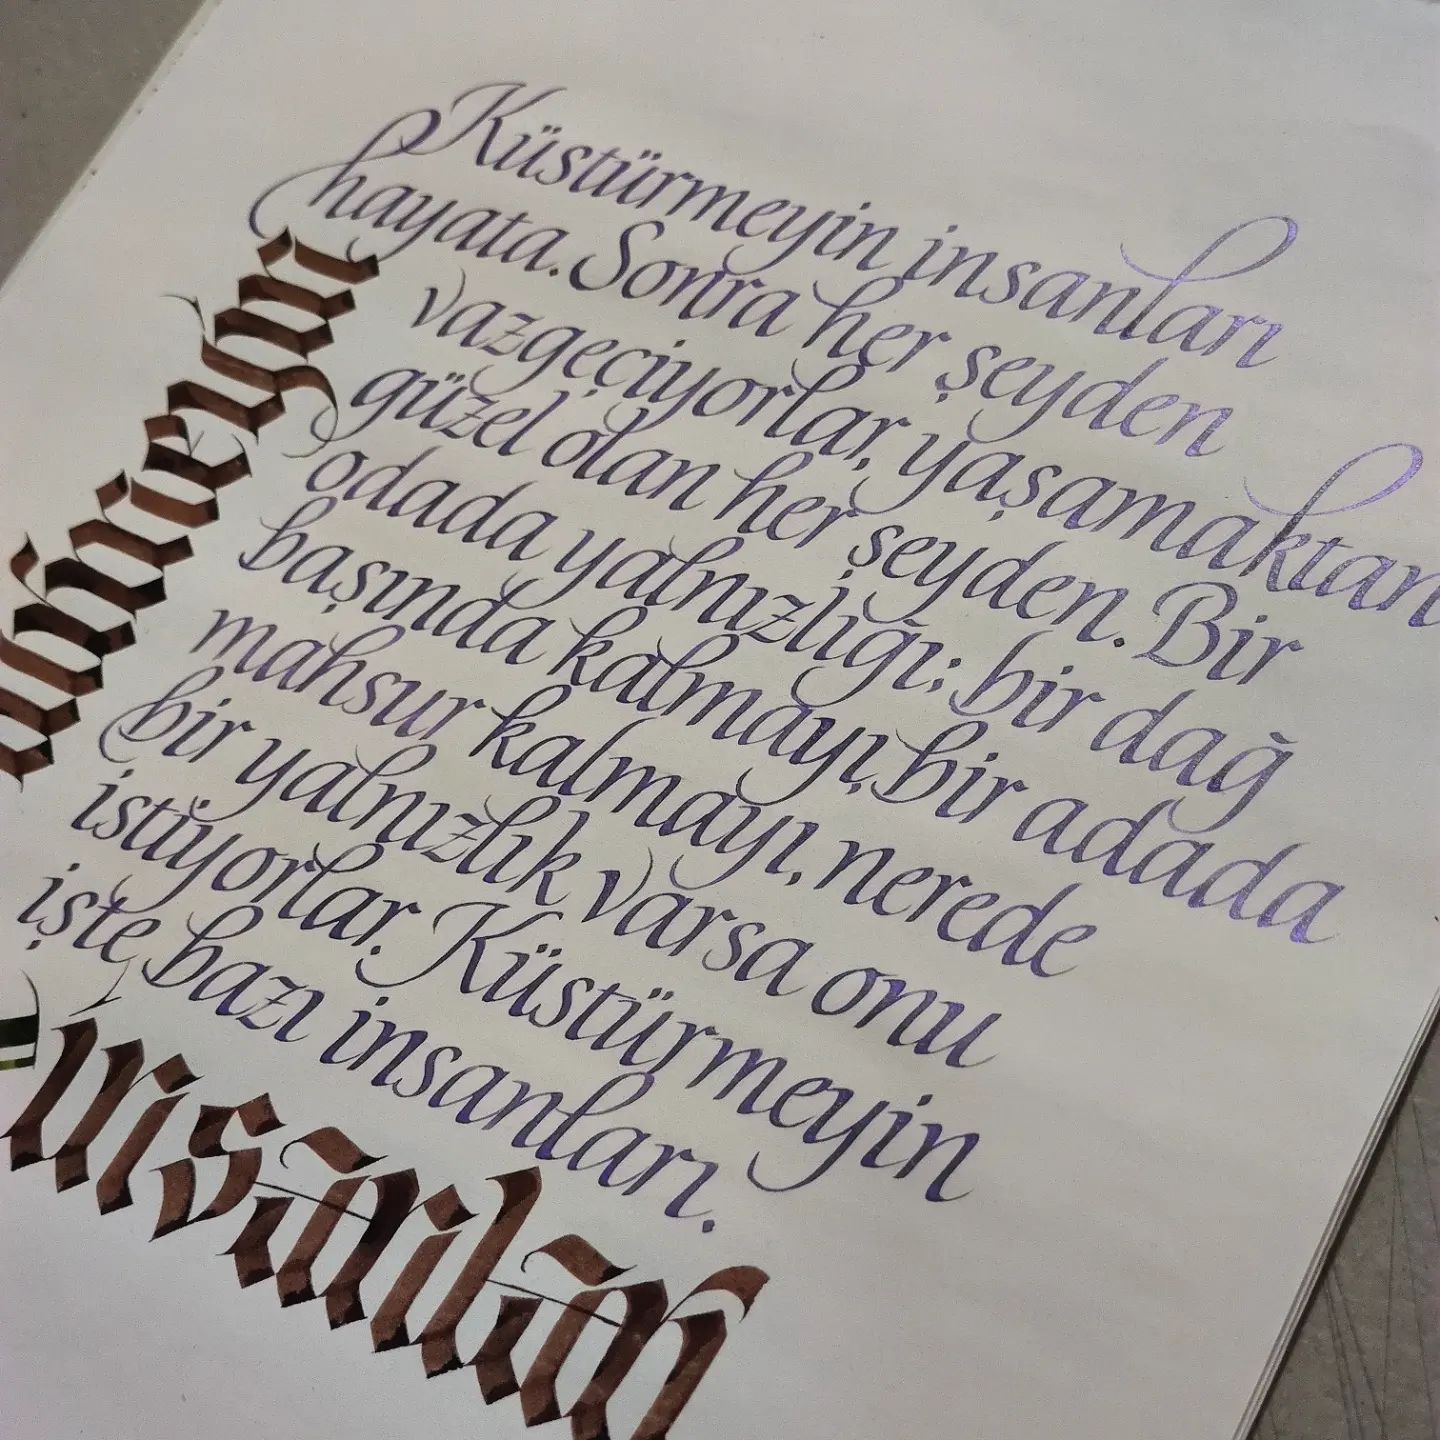 Küstürmeyin insanları
hayata. Sonra her şeyden
vazgeçiyorlar, yaşamaktan
güzel olan her şeyden. Bir
odada yalnızlığı; bir dağ
başında kalmayı, bir adada
mahsur kalmayı, nerede
bir yalnızlık varsa onu
istiyorlar. Küstürmeyin
işte bazı insanları.
insanları